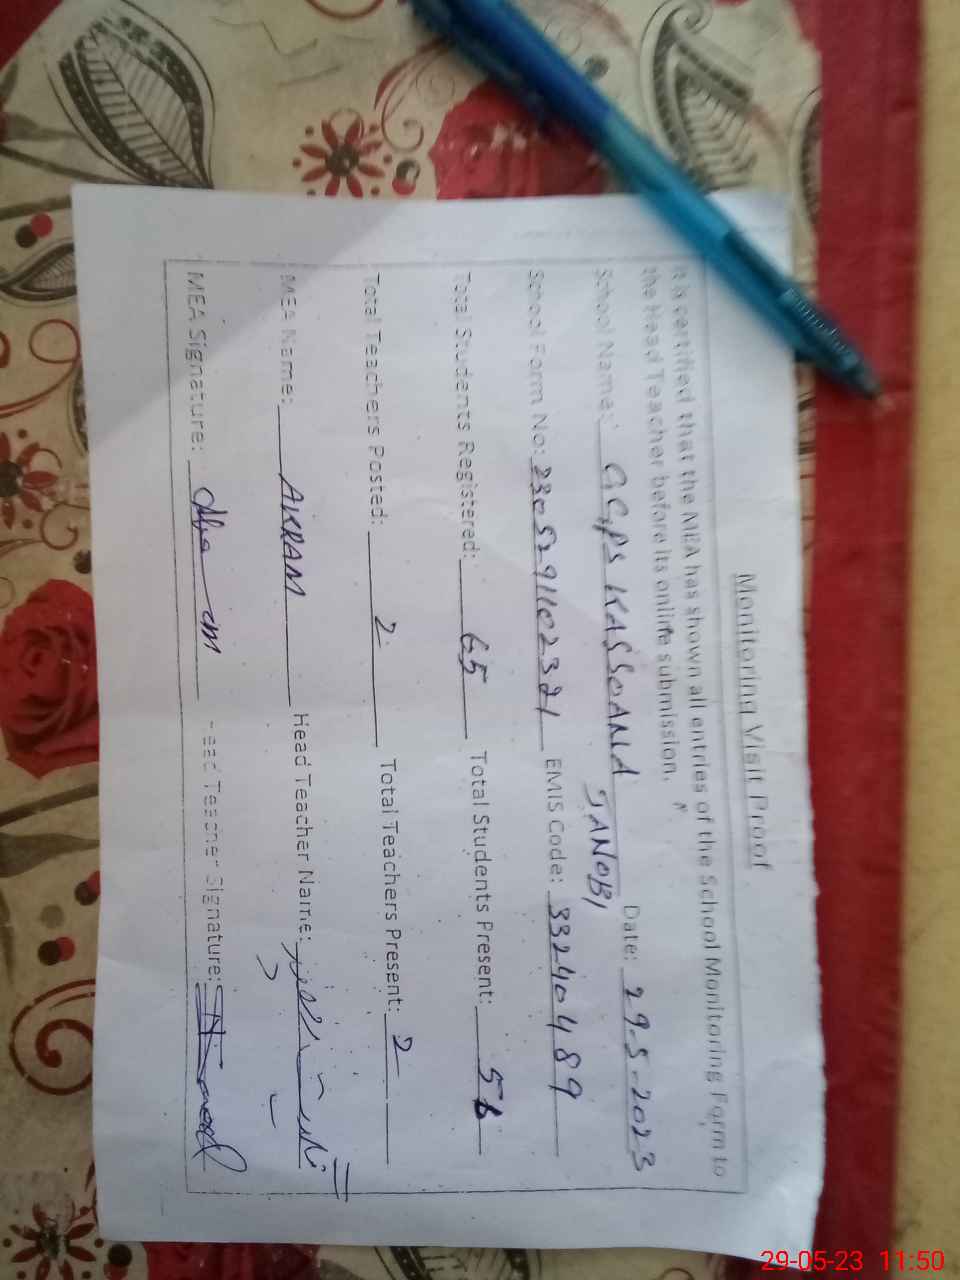 Monitoring Visit Proof
It is certified that the MEA has shown all entries of the School Monitoring Form to
the Head Teacher before its online submission.
School Name: GGPS KASSOANA JANOBI Date: 29-5-2023
School Form No: 23052911023721 EMIS Code: 33240489
Total Students Registered: 65 Total Students Present: 56
Total Teachers Posted: 2 Total Teachers Present: 2
MEA Name: AKRAM Head Teacher Name:
MEA Signature: Head Teacher Signature:
29-05-23 11:50